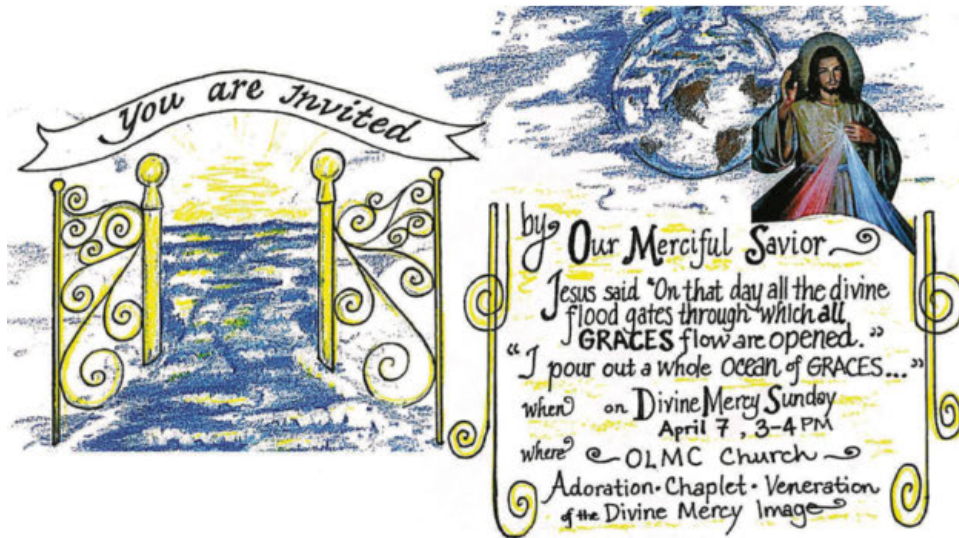 You are Invited
by Our Merciful Savior
Jesus said "On that day all the divine
flood gates through which all
GRACES flow are opened."
"I pour out a whole ocean of GRACES..."
when on Divine Mercy Sunday
April 7, 3-4 PM
where OLMC Church
Adoration · Chaplet · Veneration
of the Divine Mercy Image